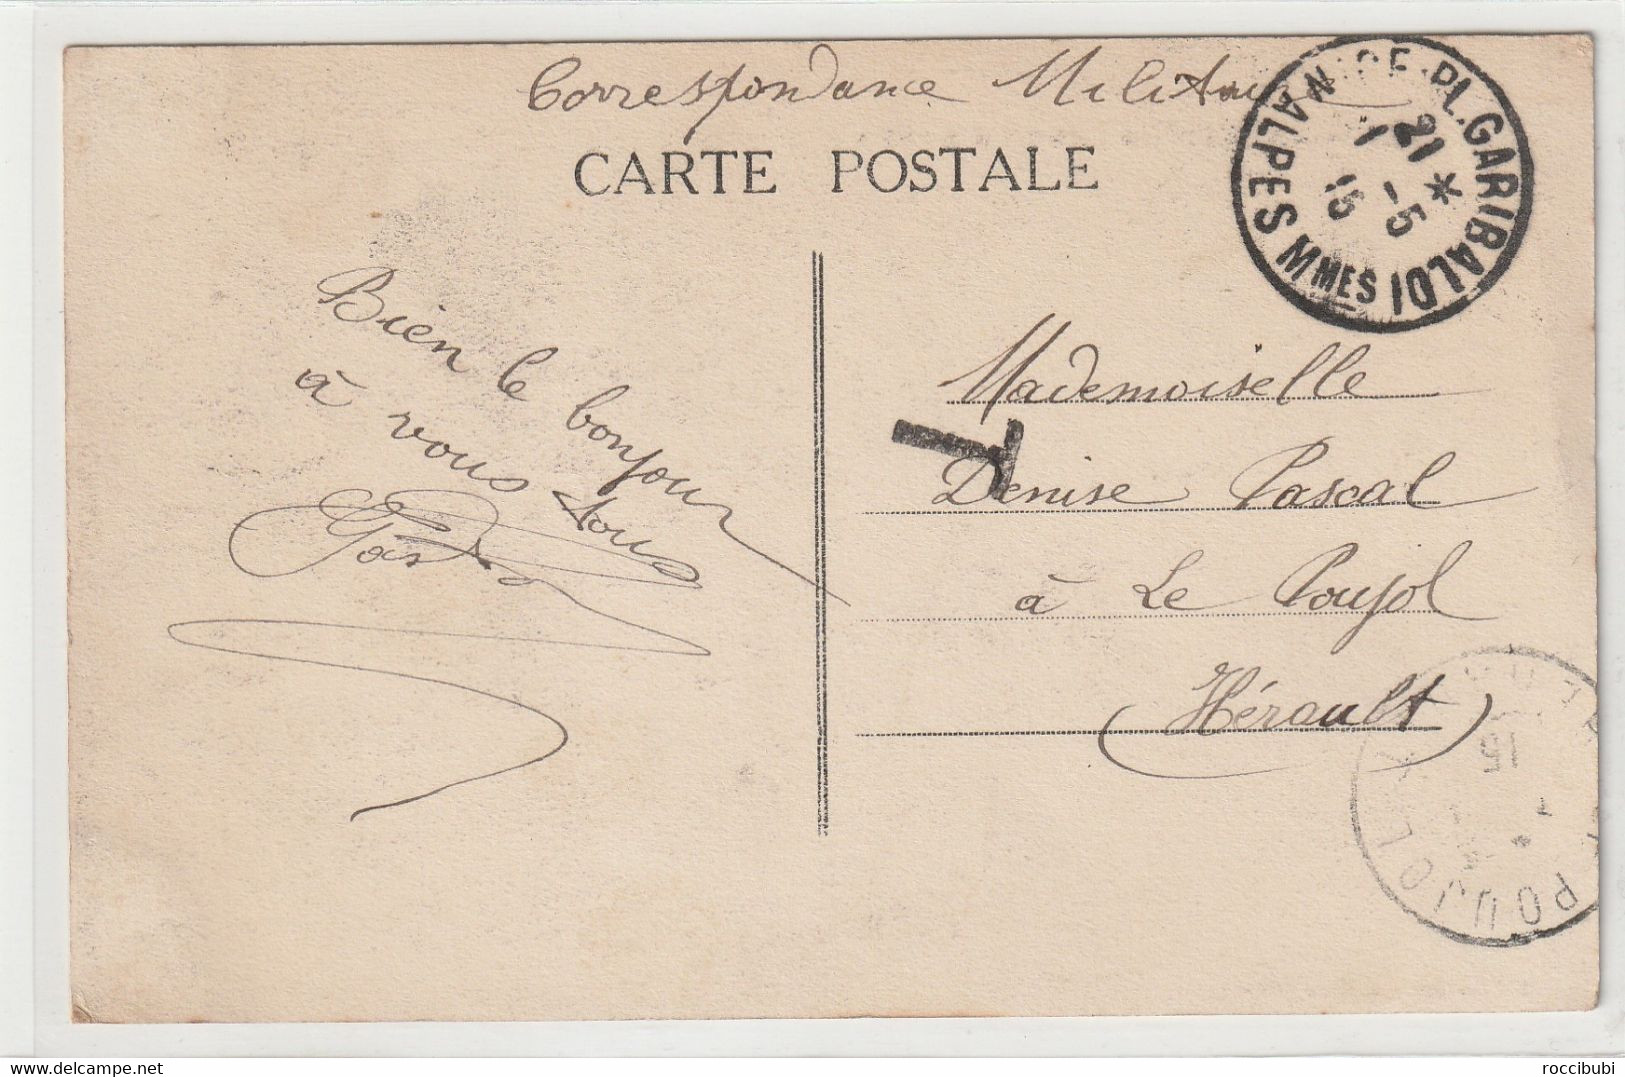 Correspondance Militaire
CARTE POSTALE
NICE-PL.GARIBALDI
21 *
1 -5
15
ALPES MMES
Bien le bonjour
à vous tous
Gaston
T
Mademoiselle
Denise Pascal
à Le Poujol
(Hérault)
POUJOL
delcampe.net
roccibubi